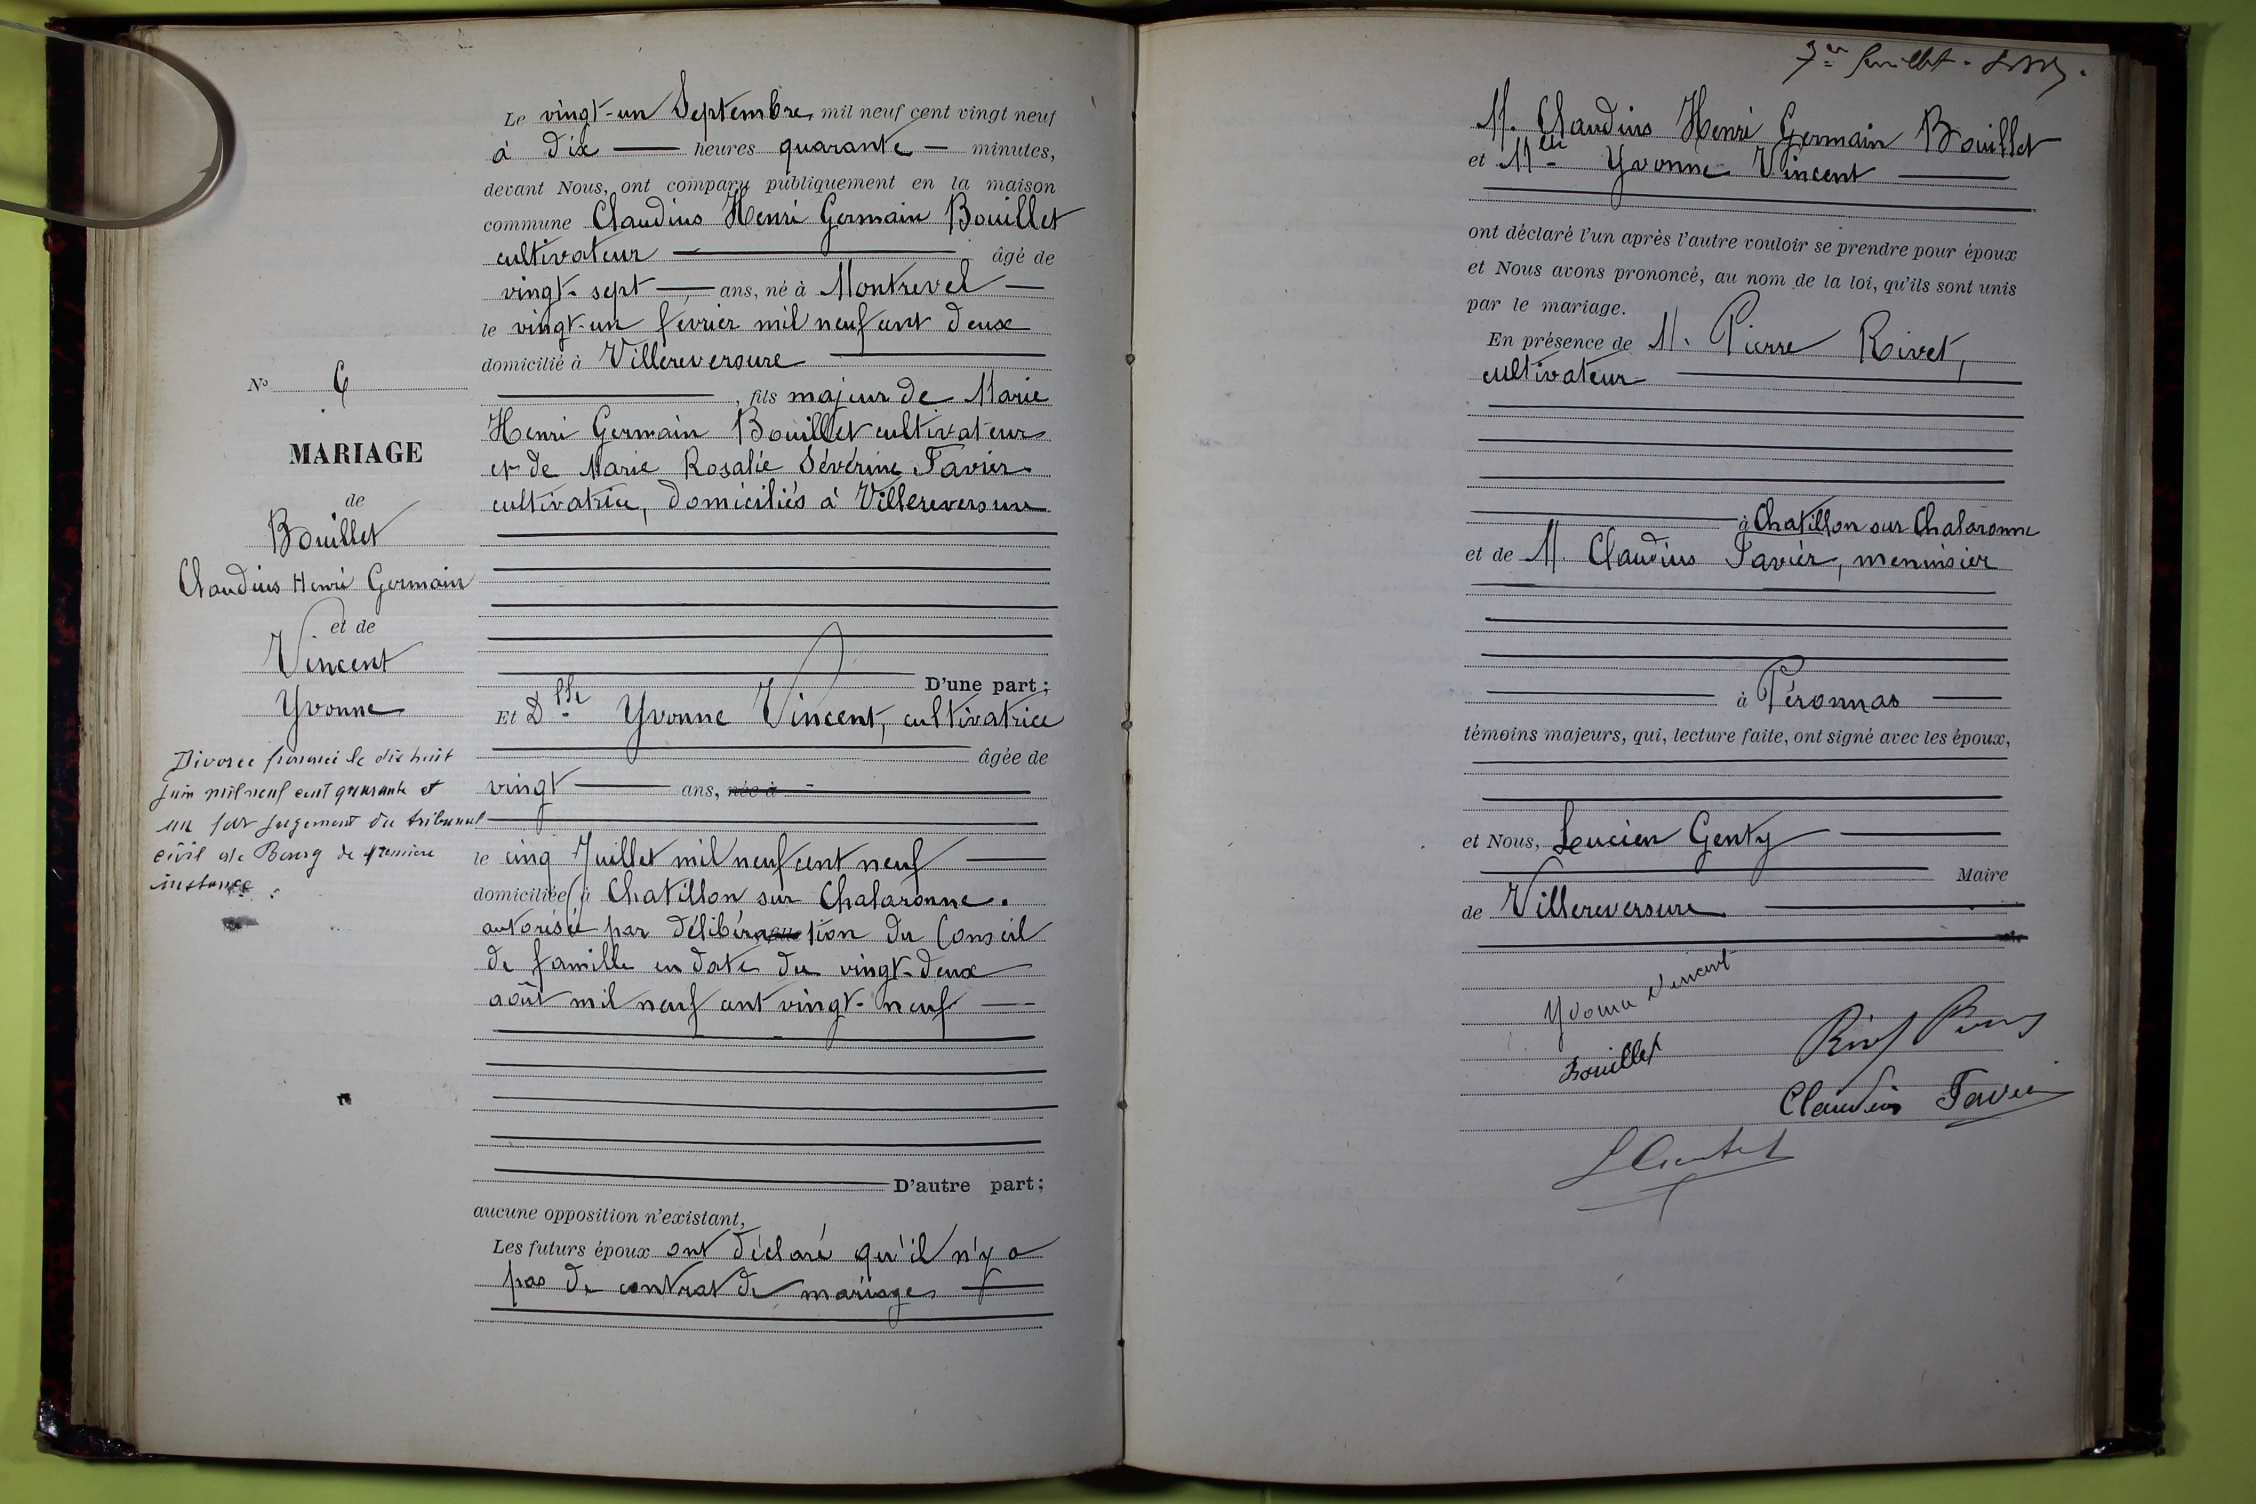 Le vingt-un Septembre mil neuf cent vingt neuf
à dix heures quarante minutes,
devant Nous, ont comparu publiquement en la maison
commune Claudius Henri Germain Bouillet
cultivateur âgé de
vingt-sept ans, né à Montrevel
le vingt-un février mil neuf cent deux
domicilié à Villereversure
, fils majeur de Marie
Henri Germain Bouillet cultivateur
et de Marie Rosalie Sévérine Favier
cultivatrice, domiciliés à Villereversure
D'une part;
Et Dlle Yvonne Vincent, cultivatrice
âgée de
vingt ans, née à
le cinq Juillet mil neuf cent neuf
domiciliée à Chatillon sur Chalaronne.
autorisée par délibération du Conseil
de famille en date du vingt-deux
août mil neuf cent vingt-neuf
D'autre part;
aucune opposition n'existant,
Les futurs époux ont déclaré qu'il n'y a
pas de contrat de mariage
No 6
MARIAGE
de
Bouillet
Claudius Henri Germain
et de
Vincent
Yvonne
Divorce prononcé le dix huit
juin mil neuf cent quarante et
un par jugement du tribunal
civil de Bourg de première
instance
M. Claudius Henri Germain Bouillet
et Mlle Yvonne Vincent
ont déclaré l'un après l'autre vouloir se prendre pour époux
et Nous avons prononcé, au nom de la loi, qu'ils sont unis
par le mariage.
En présence de M. Pierre Rivet,
cultivateur
à Chatillon sur Chalaronne
et de M. Claudius Favier, menuisier
à Péronnas
témoins majeurs, qui, lecture faite, ont signé avec les époux,
et Nous, Lucien Genty
Maire
de Villereversure
Yvonne Vincent
Bouillet
Rivet Pierre
Claudius Favier